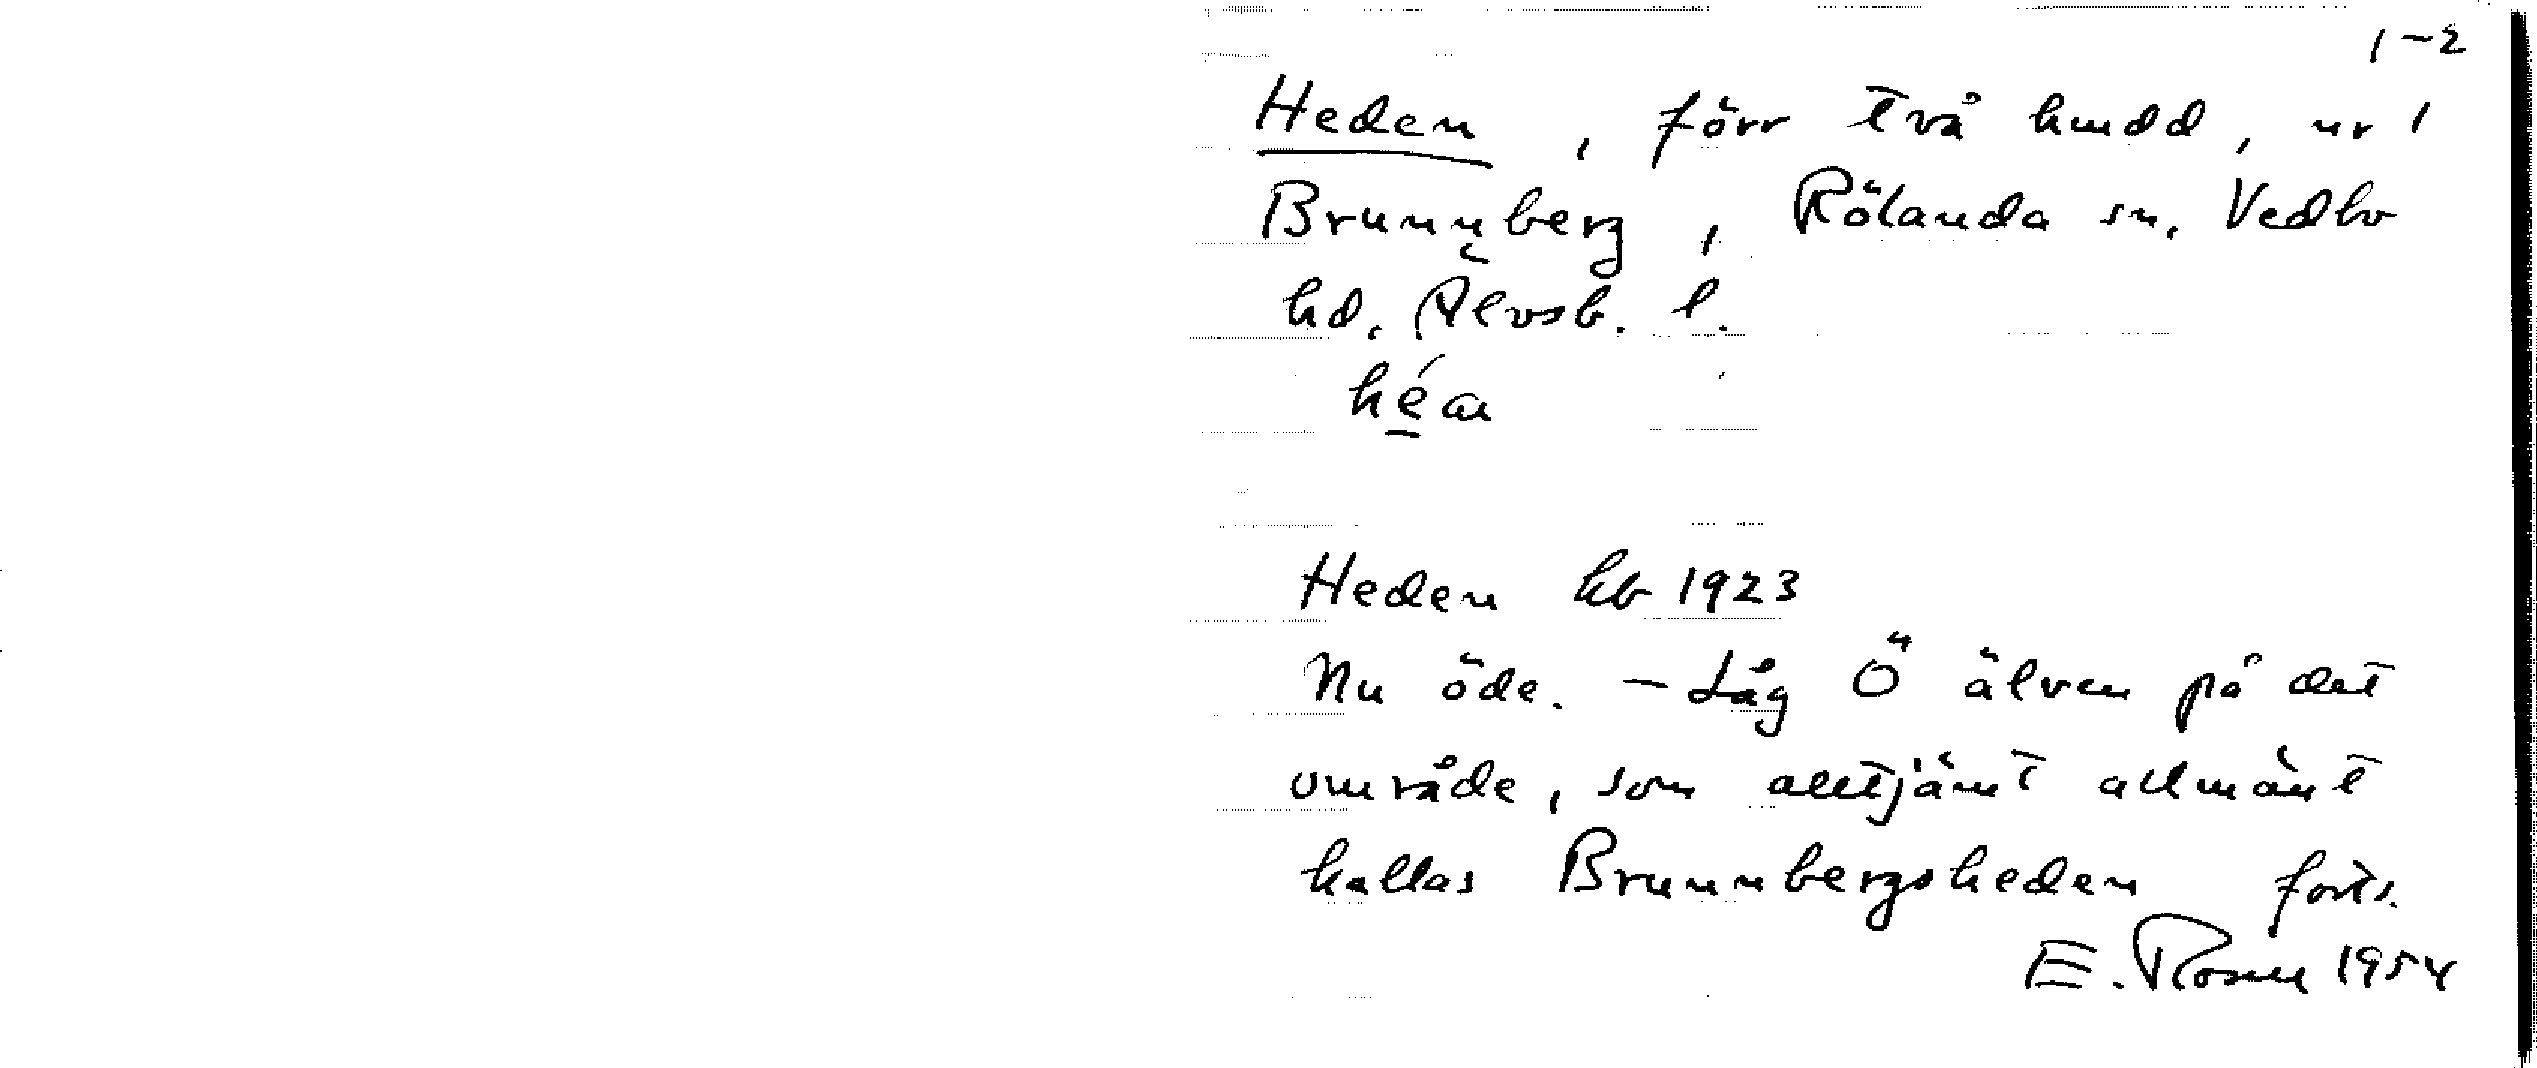 1–2
Heden, förr två hmdd, nr 1
Brunnberg, Rölanda sn, Vedbo
hd, Älvsb. l.
héa
Heden kb 1923
Nu öde. – Låg Ö älven på det
område, som alltjämt allmänt
kallas Brunnbergsheden forts.
E. Rosell 1954